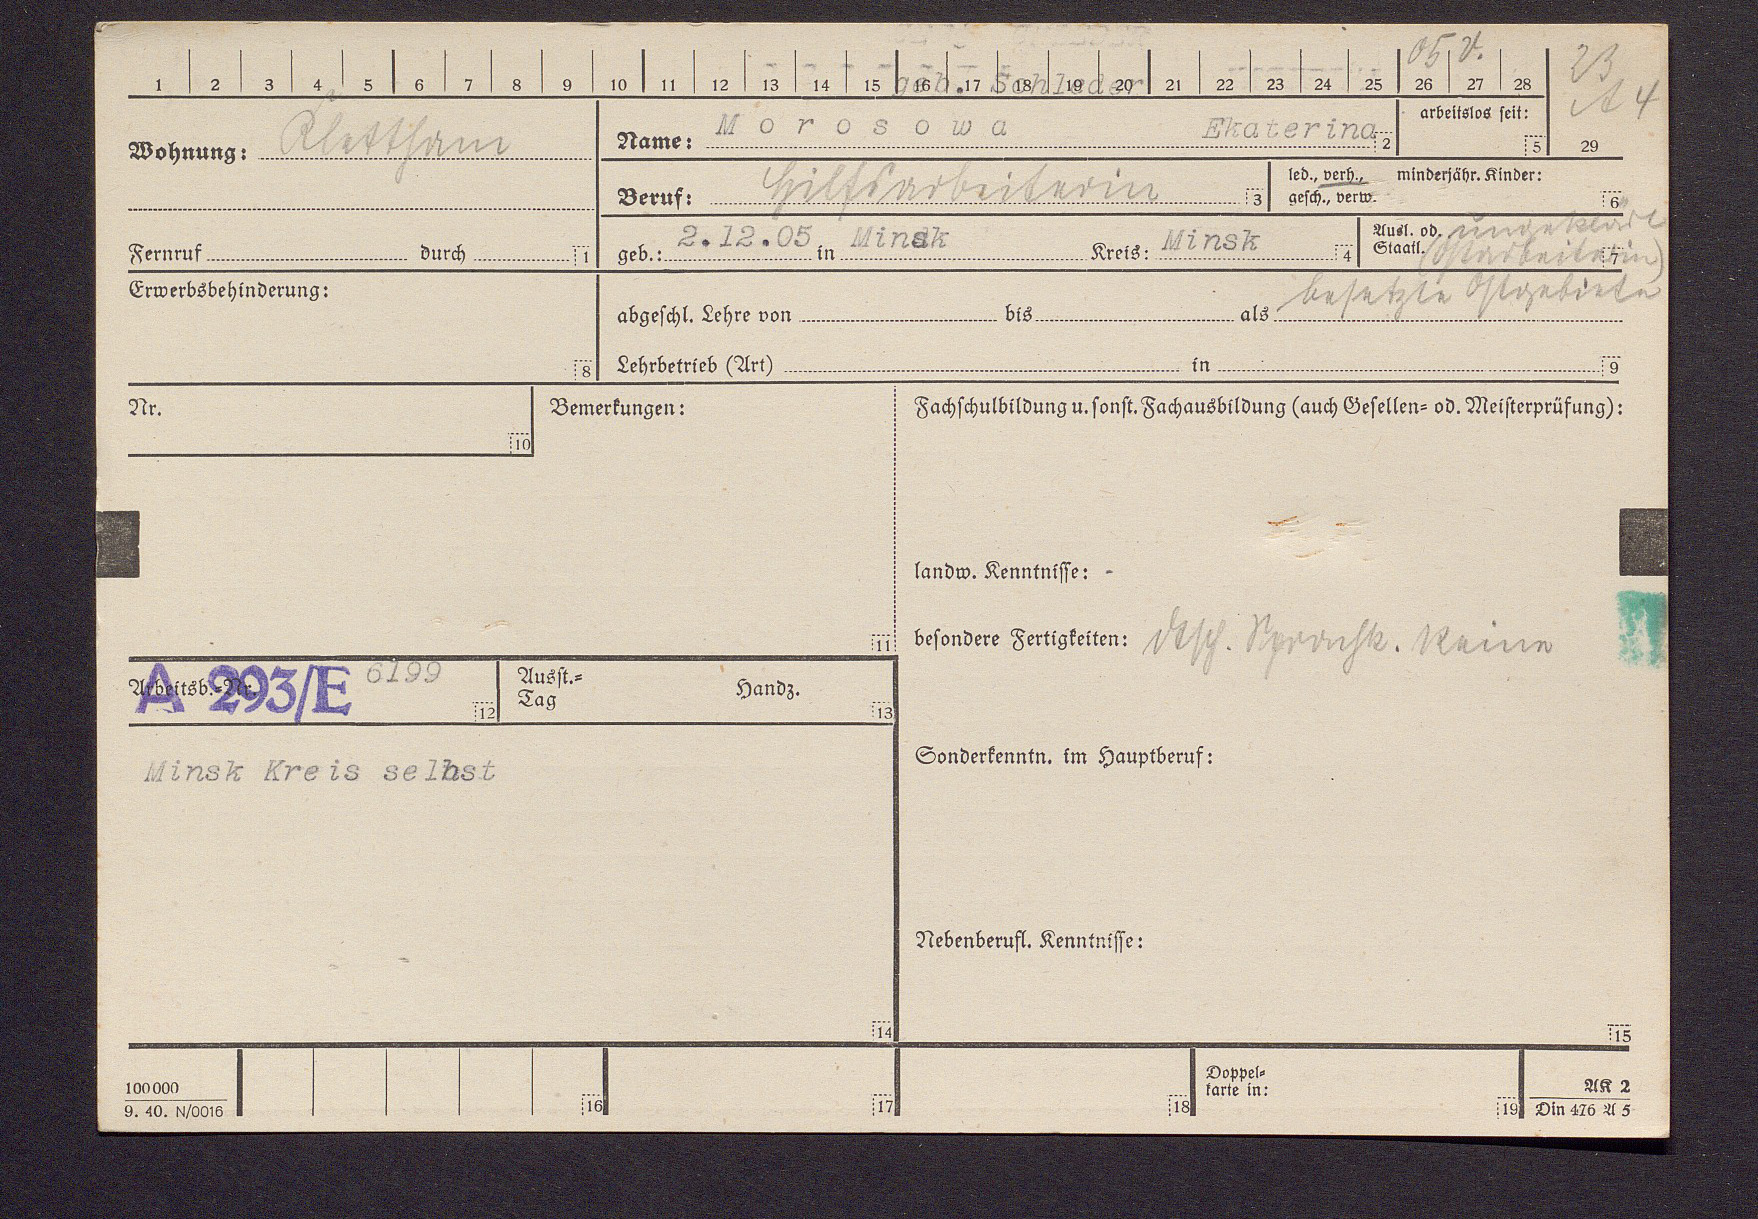 05 V.
23
A 4
1 2 3 4 5 6 7 8 9 10 11 12 13 14 15 16 17 18 19 20 21 22 23 24 25 26 27 28
geb. Schleder
Wohnung: Klettham
Name: Morosowa Ekaterina 2
arbeitslos seit: 5
29
Beruf: Hilfsarbeiterin 3
led., verh., minderjähr. Kinder:
gesch., verw. 6
Fernruf durch 1
geb.: 2.12.05 in Minsk Kreis: Minsk 4
Ausl. od. ungeklärt
Staatl. (Ostarbeiterin) 7
besetzte Ostgebiete
Erwerbsbehinderung: 8
abgeschl. Lehre von bis als
Lehrbetrieb (Art) in 9
Nr. 10
Bemerkungen: 11
Fachschulbildung u. sonst. Fachausbildung (auch Gesellen- od. Meisterprüfung):
landw. Kenntnisse: -
besondere Fertigkeiten: dtsch. Sprachk. keine
Arbeitsb.-Nr. A 293/E 6199 12
Ausst.-
Tag Handz. 13
Minsk Kreis selbst
14
Sonderkenntn. im Hauptberuf:
Nebenberufl. Kenntnisse:
15
100000
9. 40. N/0016
16 17 18
Doppel-
karte in: 19
AK 2
Din 476 A 5